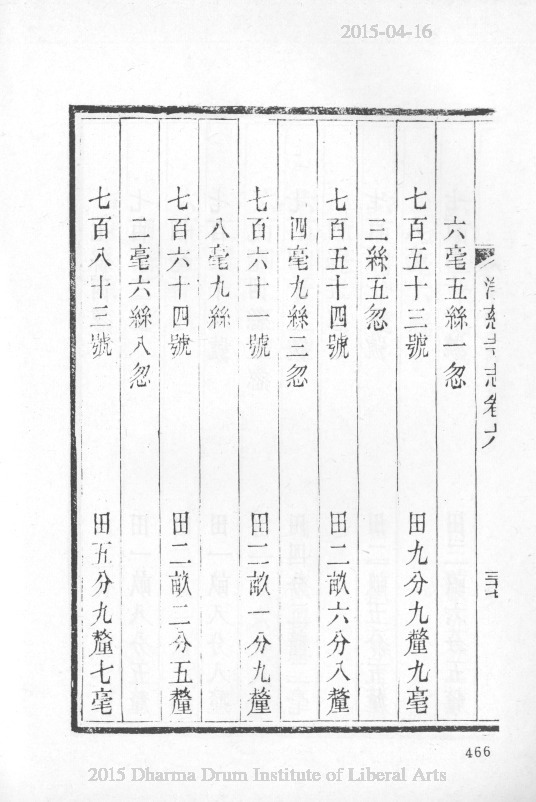 2015-04-16
淨慈寺志卷六
三十七
六毫五絲一忽
七百五十三號 田九分九釐九毫
三絲五忽
七百五十四號 田二畝六分八釐
四毫九絲三忽
七百六十一號 田二畝一分九釐
八毫九絲
七百六十四號 田二畝二分五釐
二毫六絲八忽
七百八十三號 田五分九釐七毫
466
2015 Dharma Drum Institute of Liberal Arts